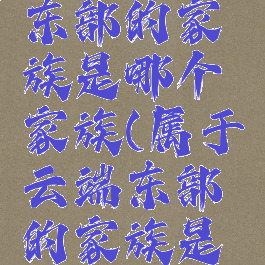 东部的家
族是哪个
家族(属于
云端东部
的家族是